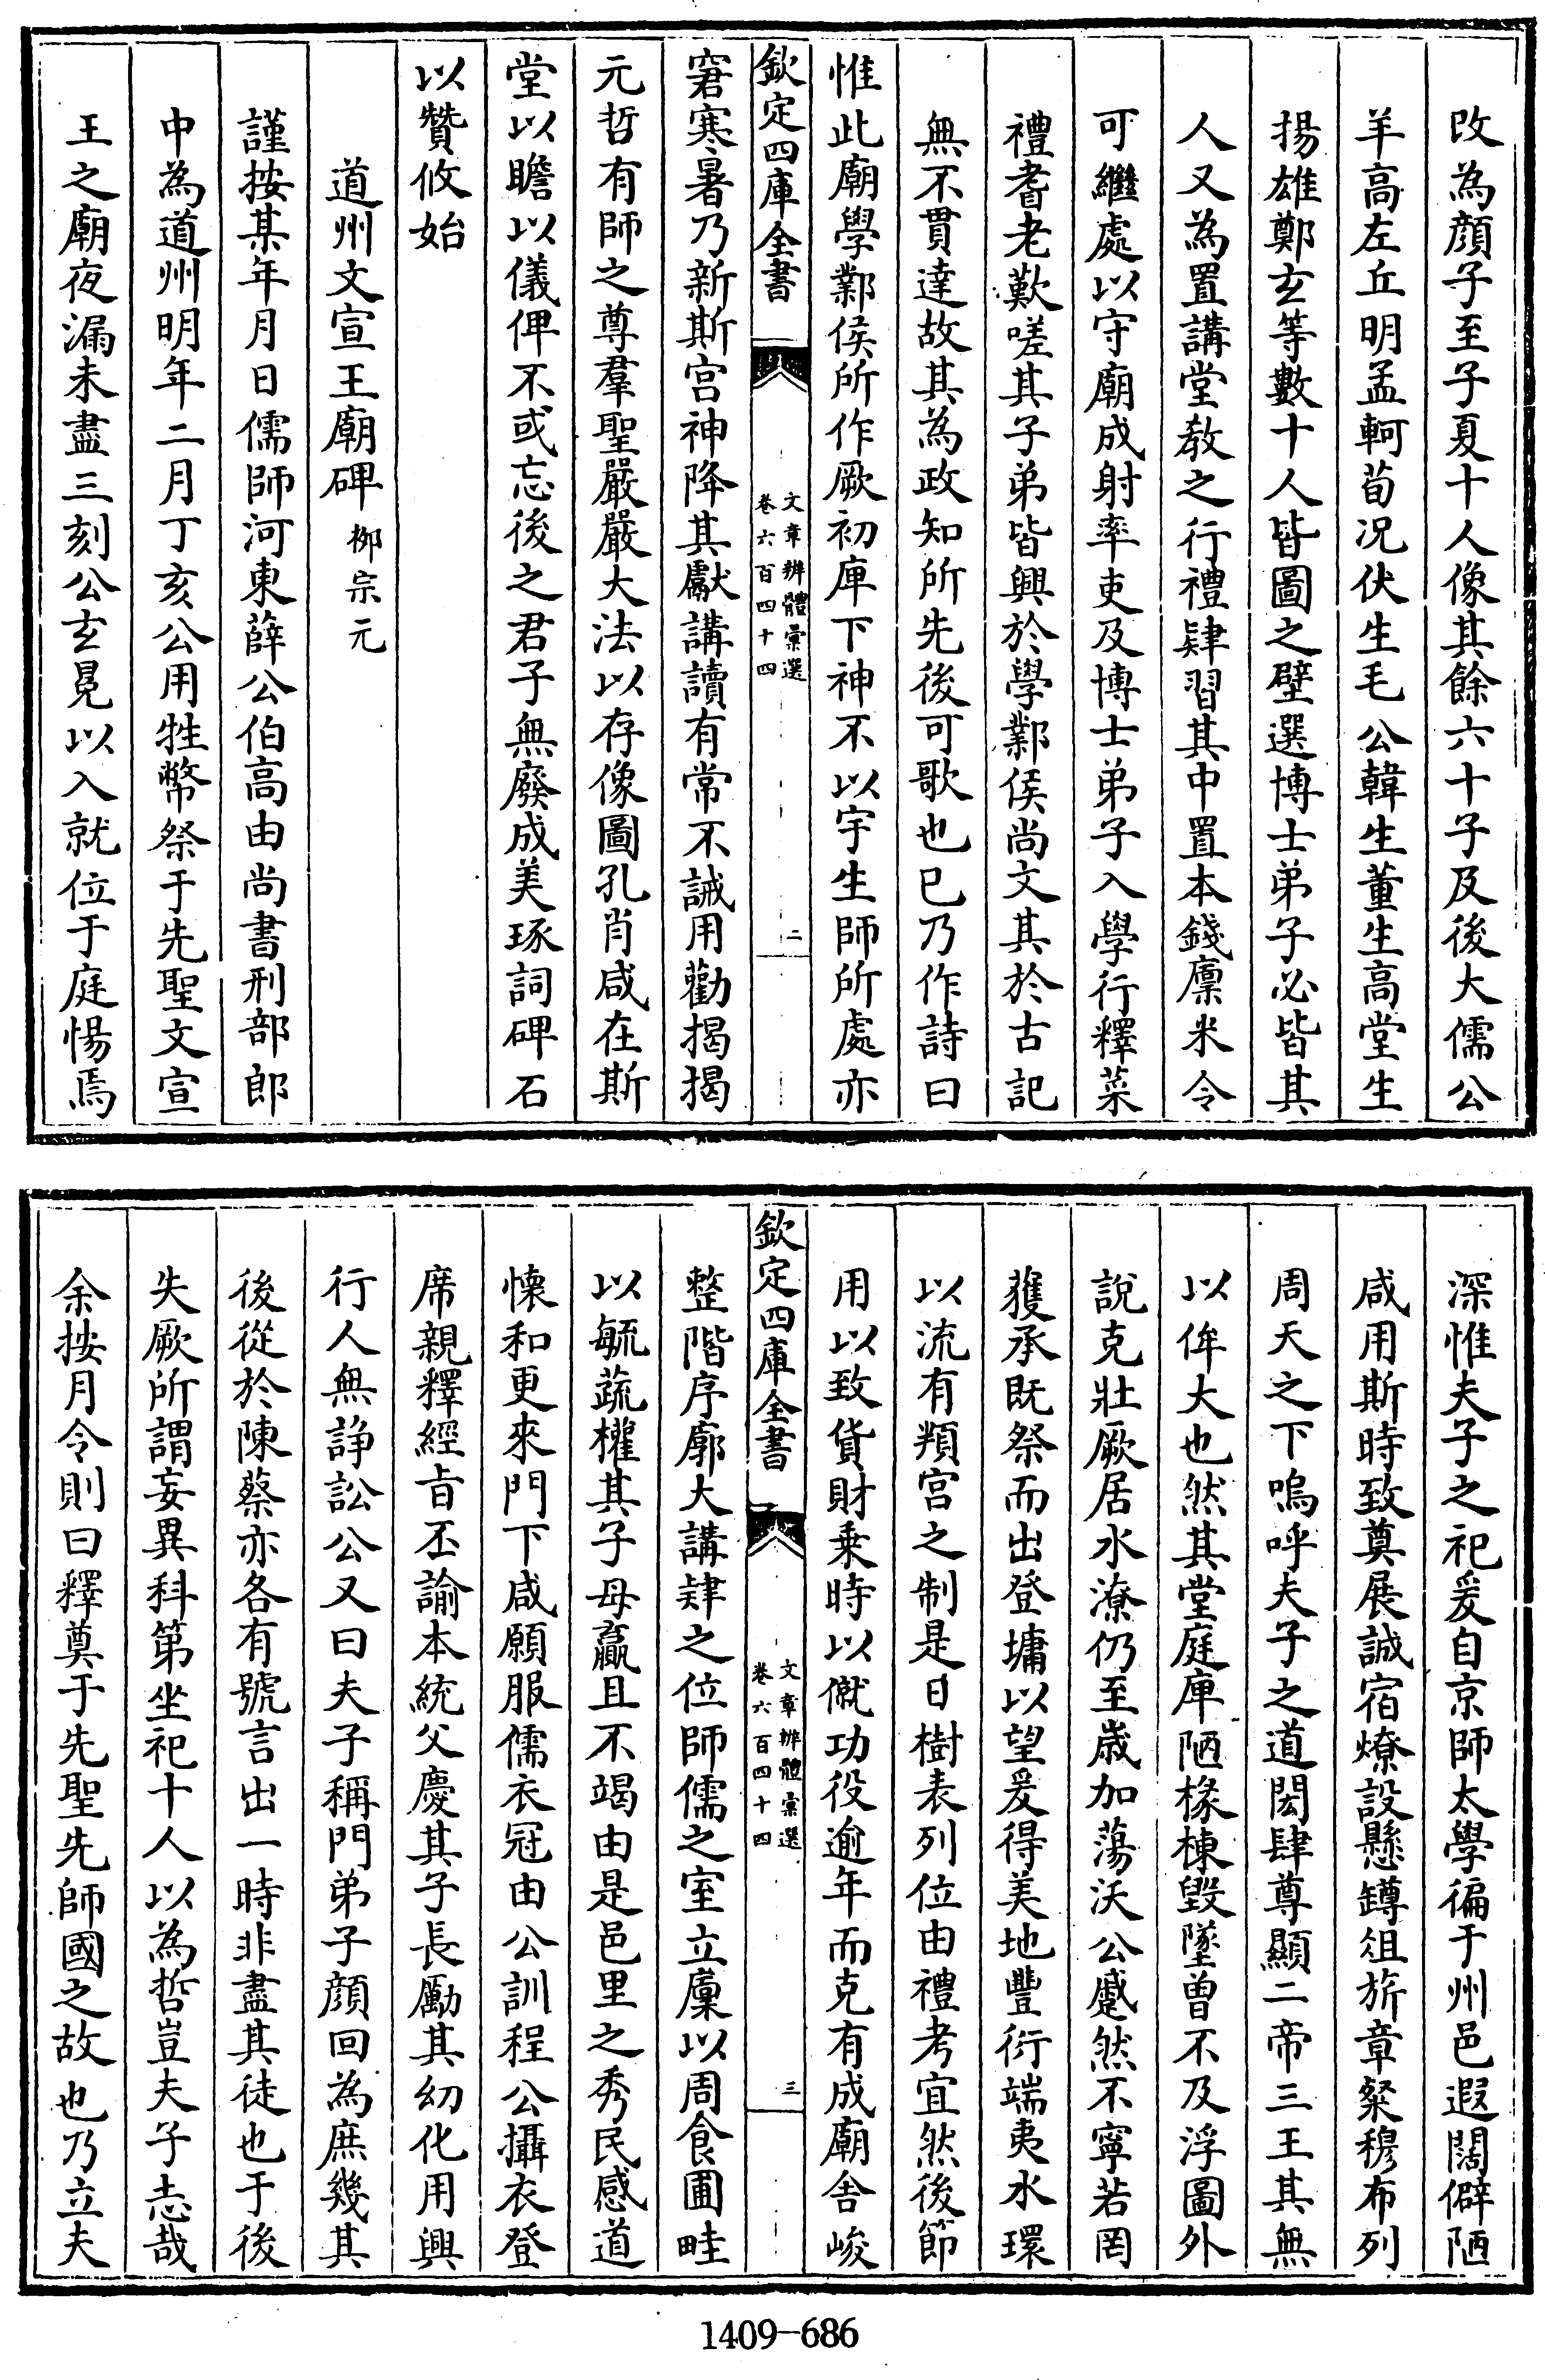 改為顔子至子夏十人像其餘六十子及後大儒公
羊高左丘明孟軻荀况伏生毛公韓生董生高堂生
揚雄鄭玄等數十人皆圖之壁選博士弟子必皆其
人又為置講堂教之行禮肄習其中置本錢廩米令
可繼處以守廟成躬率吏及博士弟子入學行釋菜
禮耆老歎嗟其子弟皆興於學鄴侯尚文其於古記
無不貫達故其為政知所先後可歌也已乃作詩曰
惟此廟學鄴侯所作厥初庫下神不以宇生師所處亦
欽定四庫全書
文章辨體彙選
卷六百四十四
二
窘寒暑乃新斯宫神降其獻講讀有常不誡用勸揭揭
元哲有師之尊羣聖嚴嚴大法以存像圖孔肖咸在斯
堂以瞻以儀俾不或忘後之君子無廢成美琢詞碑石
以贊攸始
道州文宣王廟碑 柳宗元
謹按某年月日儒師河東薛公伯高由尚書刑部郎
中為道州明年二月丁亥公用牲幣祭于先聖文宣
王之廟夜漏未盡三刻公玄冕以入就位于庭惕焉
深惟夫子之祀爰自京師太學徧于州邑遐闊僻陋
咸用斯時致奠展誠宿燎設懸罇俎旂章粲穆布列
周天之下嗚呼夫子之道閎肆尊顯二帝三王其無
以侔大也然其堂庭庳陋椽棟毀墜曽不及浮圖外
說克壯厥居水潦仍至歲加蕩沃公蹙然不寧若罔
獲承既祭而出登墉以望爰得美地豐衍端夷水環
以流有頖宫之制是日樹表列位由禮考宜然後節
用以致貨財乗時以僦功役逾年而克有成廟舍峻
欽定四庫全書
文章辨體彙選
卷六百四十四
三
整階序廓大講肄之位師儒之室立廩以周食圃畦
以毓蔬權其子母贏且不竭由是邑里之秀民感道
懷和更來門下咸願服儒衣冠由公訓程公攝衣登
席親釋經㫖丕諭本統父慶其子長勵其幼化用興
行人無諍訟公又曰夫子稱門弟子顔回為庶幾其
後從於陳蔡亦各有號言出一時非盡其徒也于後
失厥所謂妄異科第坐祀十人以為哲豈夫子志哉
余按月令則曰釋奠于先聖先師國之故也乃立夫
1409-686